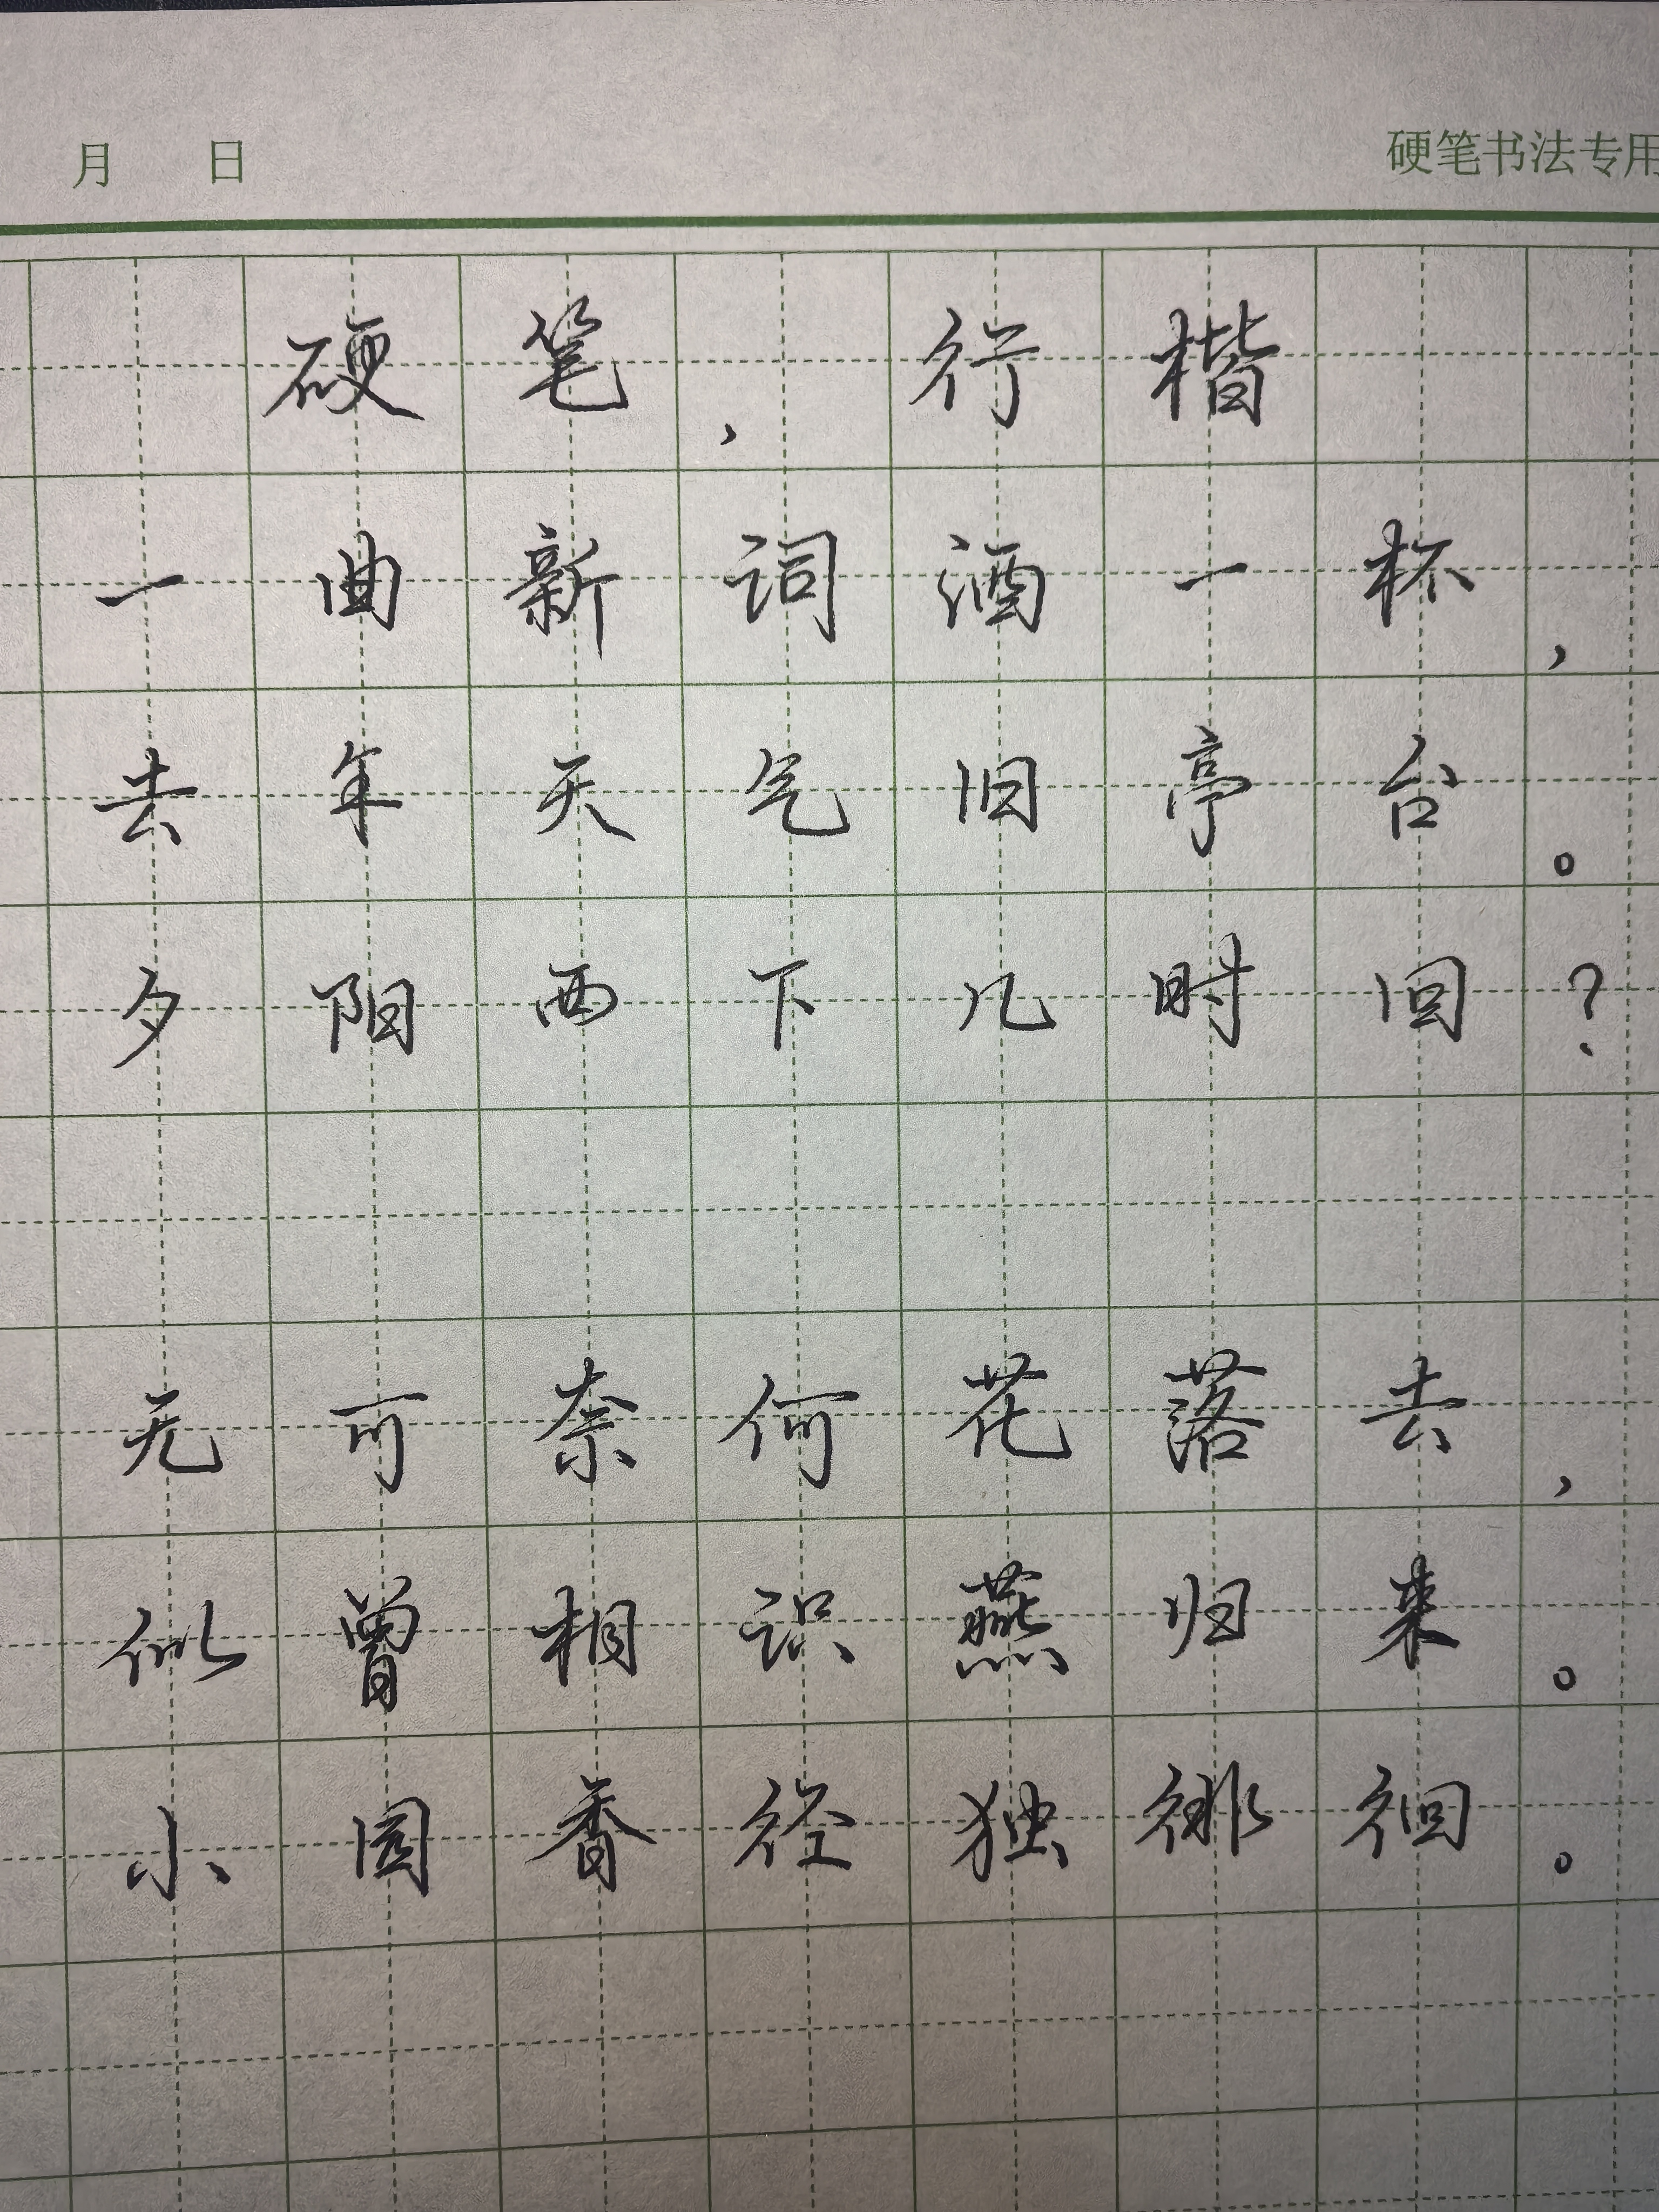 月 日 硬笔书法专用
硬笔，行楷
一曲新词酒一杯，
去年天气旧亭台。
夕阳西下几时回？
无可奈何花落去，
似曾相识燕归来。
小园香径独徘徊。